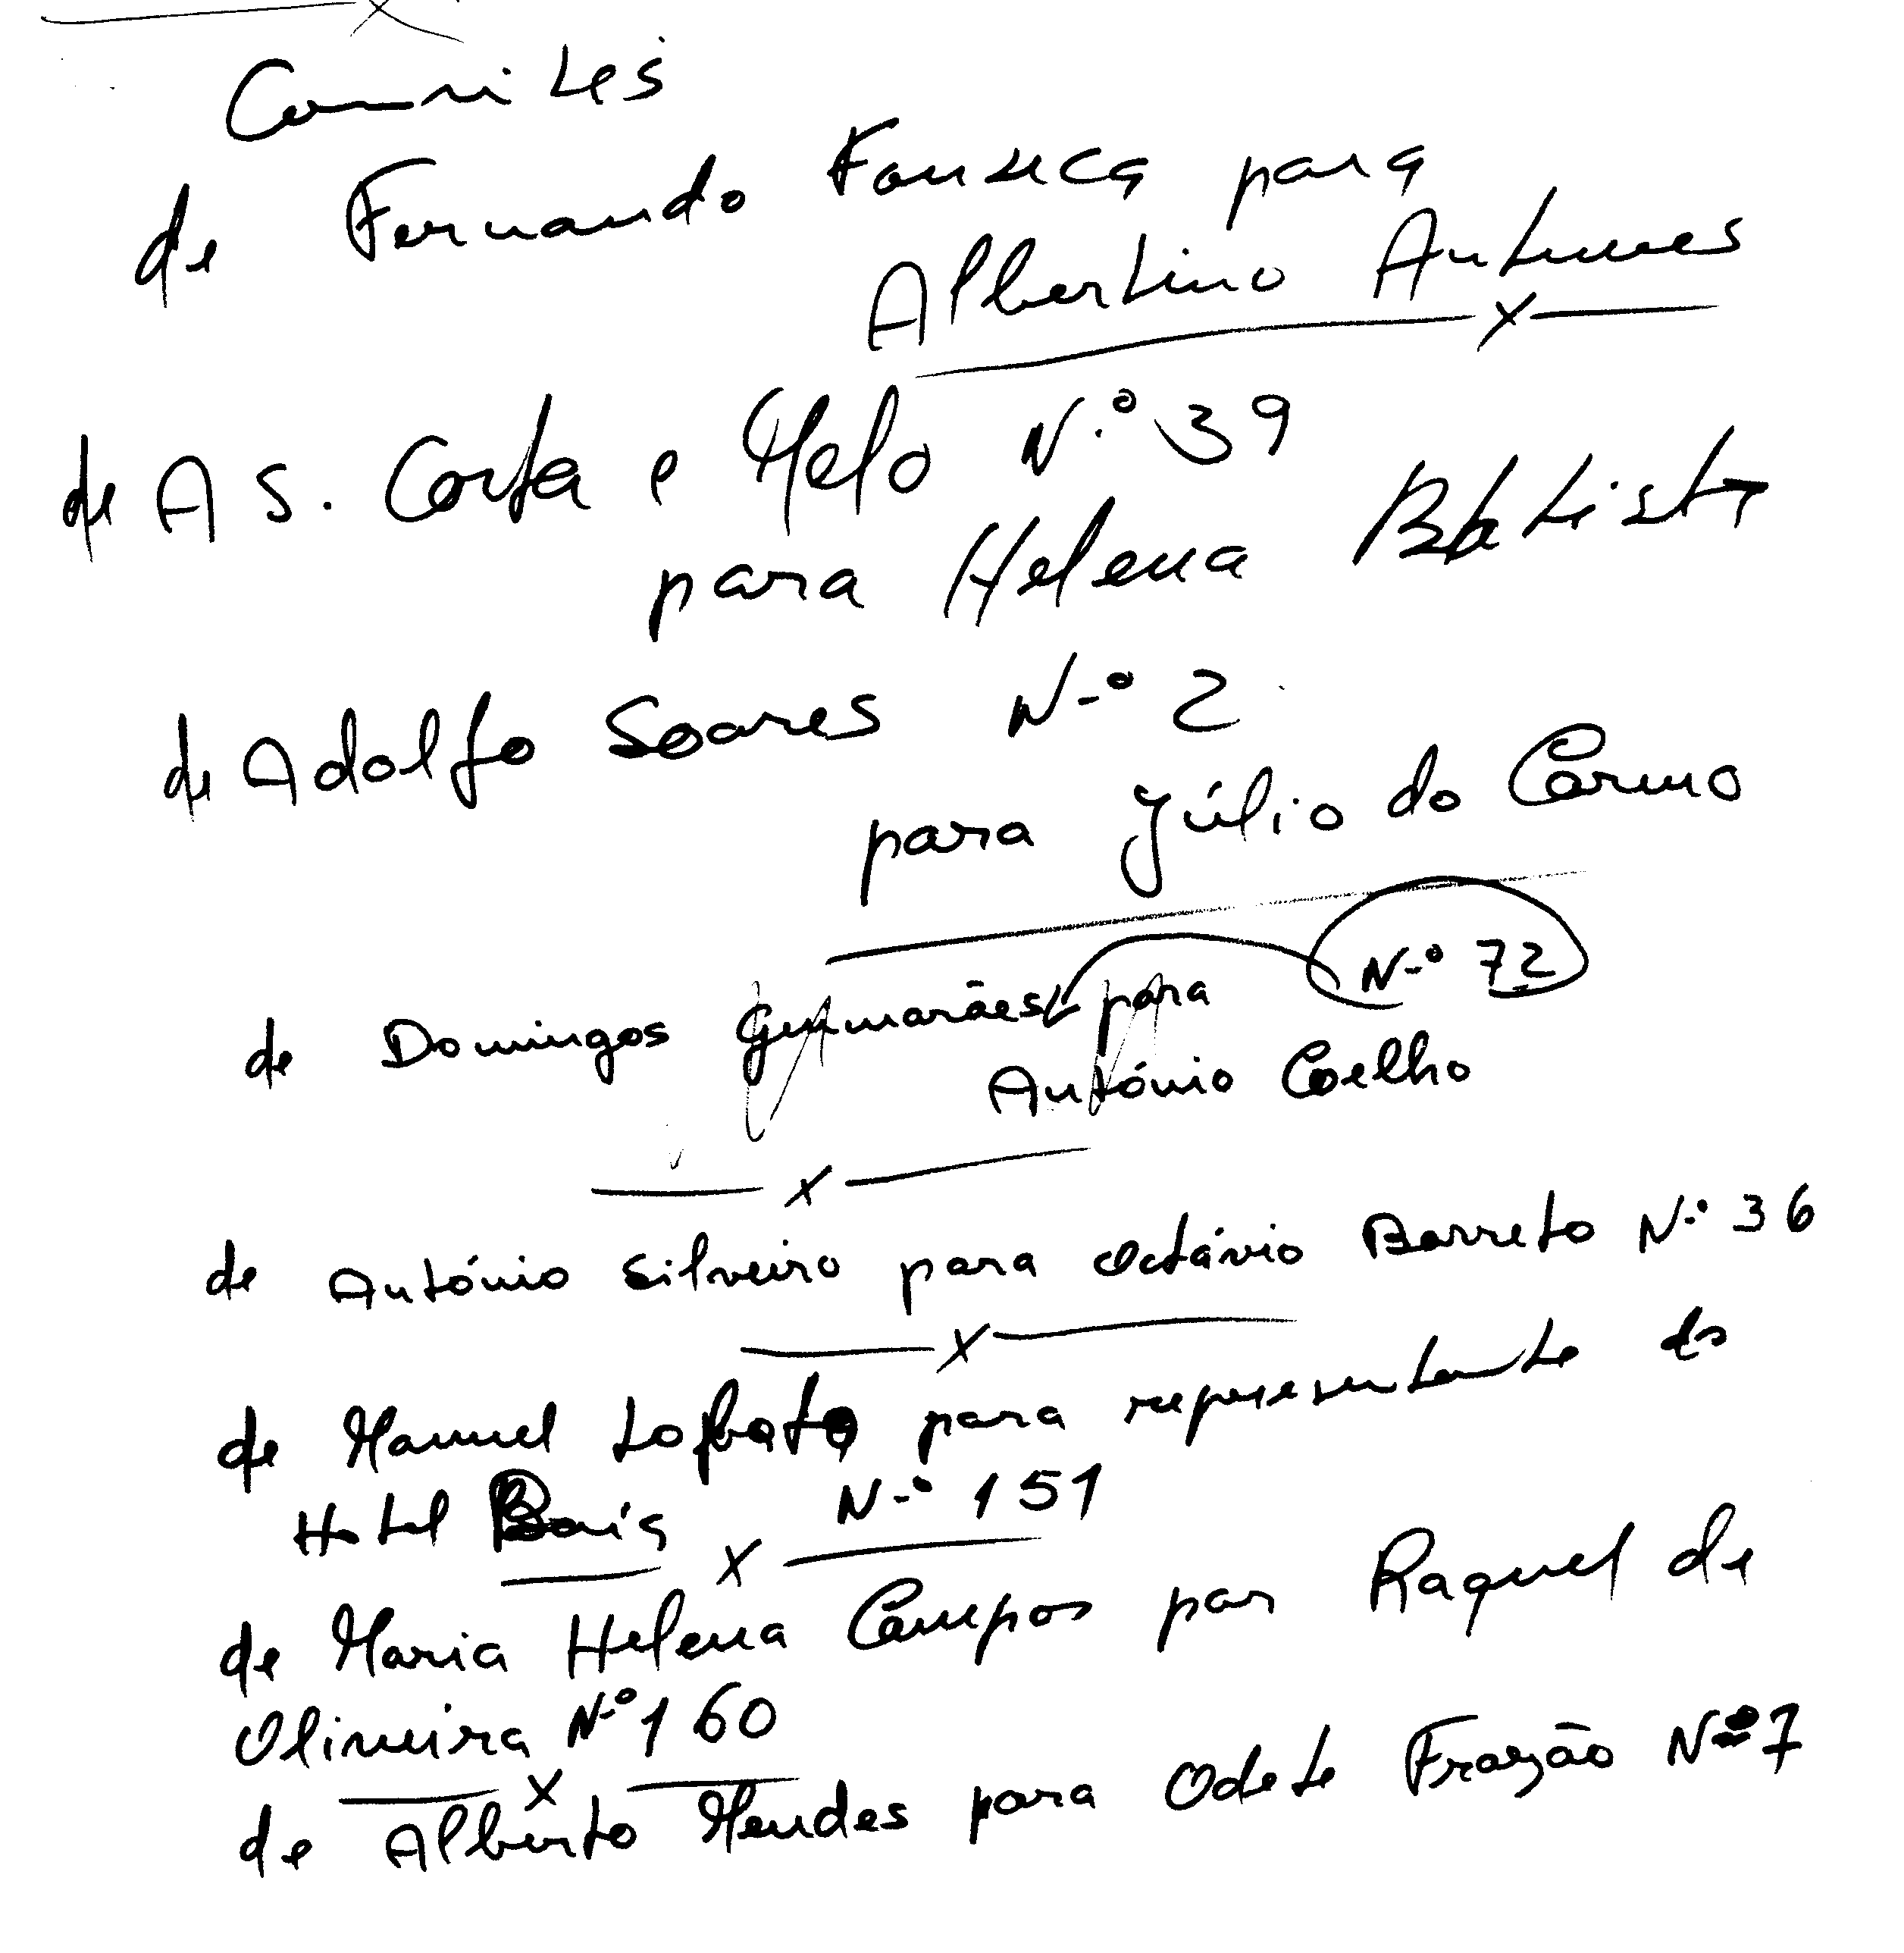 Convites
de Fernando Fonseca para
Albertino Antunes
de A S. Costa e Melo N.º 39
para Helena Batista
de Adolfo Soares N.º 2
para Júlio do Carmo
de Domingos Guimarães para N.º 72
António Coelho
de António Silveiro para Octávio Barreto N.º 36
de Manuel Lobato para representante do
Hotel N.º 151
de Maria Helena Campos par Raquel de
Oliveira N.º 160
de Alberto Mendes para Odete Frazão Nº 7